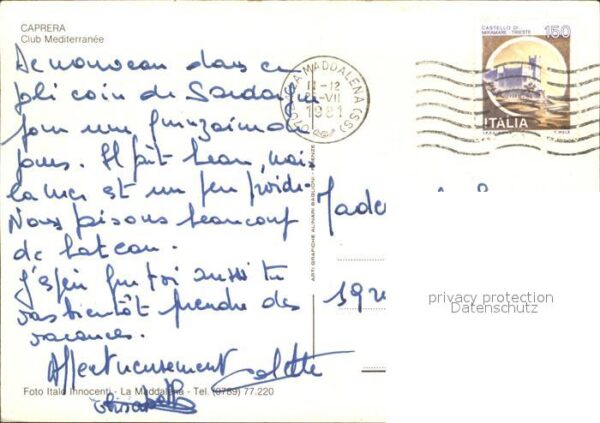 CAPRERA
Club Mediterranée
De nouveau dans ce
joli coin de Sardaigne
pour une quinzaine de
jours. Il fait beau, mais
la mer est un peu froide.
Nous faisons beaucoup
de bateau.
J'espère que toi aussi tu
vas bientôt prendre des
vacances.
Affectueusement
Colette
Elisabeth
Foto Italo Innocenti - La Maddalena - Tel. (0789) 77.220
ARTI GRAFICHE ALINARI BAGLIONI - FIRENZE
LA MADDALENA (SS)
11-12
-VII
1981
07024
CASTELLO DI
MIRAMARE - TRIESTE
150
ITALIA
Made
592
privacy protection
Datenschutz